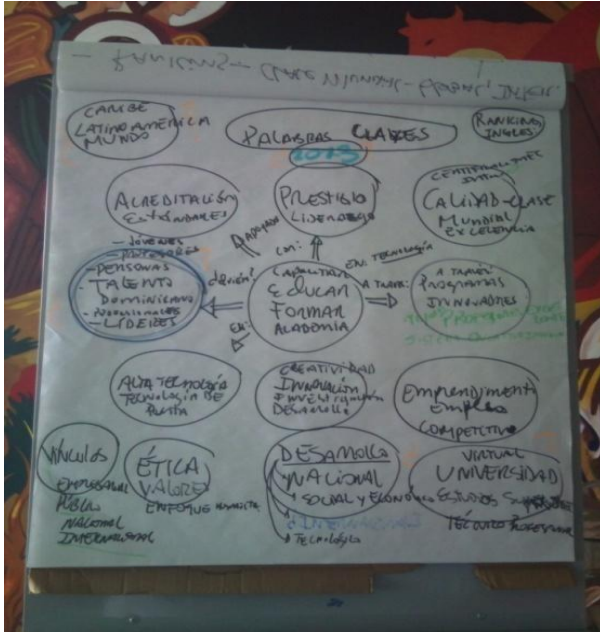 - RANKING - CLASE MUNDIAL - GLOBAL, INTER.
CARIBE
LATINOAMÉRICA
MUNDO
PALABRAS CLAVES
2013
RANKING
INGLES.
ACREDITACIÓN
ESTÁNDARES
PRESTIGIO
LIDERAZGO
CALIDAD-CLASE
MUNDIAL
EXCELENCIA
- JÓVENES
- PROFESORES
- PERSONAS
- TALENTO
DOMINICANO
- PROFESIONALES
- LÍDERES
¿A quién?
APOYADO
CON:
EN: TECNOLOGÍA
A TRAVÉS:
EN:
CAPACITAR
EDUCAR
FORMAR
ACADEMIA
A TRAVÉS
PROGRAMAS
INNOVADORES
ALTA TECNOLOGÍA
TECNOLOGÍA DE
PUNTA
CREATIVIDAD
INNOVACIÓN
INVESTIGACIÓN
DESARROLLO
Emprendimiento
Empleo
COMPETITIVO
VÍNCULOS
EMPRESARIAL
PÚBLICO
NACIONAL
INTERNACIONAL
ÉTICA
VALORES
ENFOQUE HUMANISTA
DESARROLLO
NACIONAL
SOCIAL Y ECONÓMICO
TECNOLÓGICO
VIRTUAL
UNIVERSIDAD
ESTUDIOS
TÉCNICO PROFESIONAL